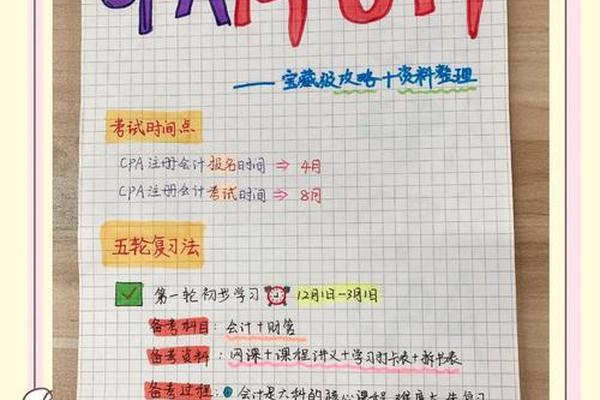 CPA
——宝藏级攻略+资料整理
考试时间点
CPA注册会计报名时间 ⇒ 4月
CPA注册会计考试时间 ⇒ 8月
五轮复习法
第一轮初步学习 12月1日-3月1日
备考科目: 会计+财管
备考资料: 网课+课程讲义+学习打卡表+拆书表
备考过程: ● 会计是六科的核心课程,难度大,先复习